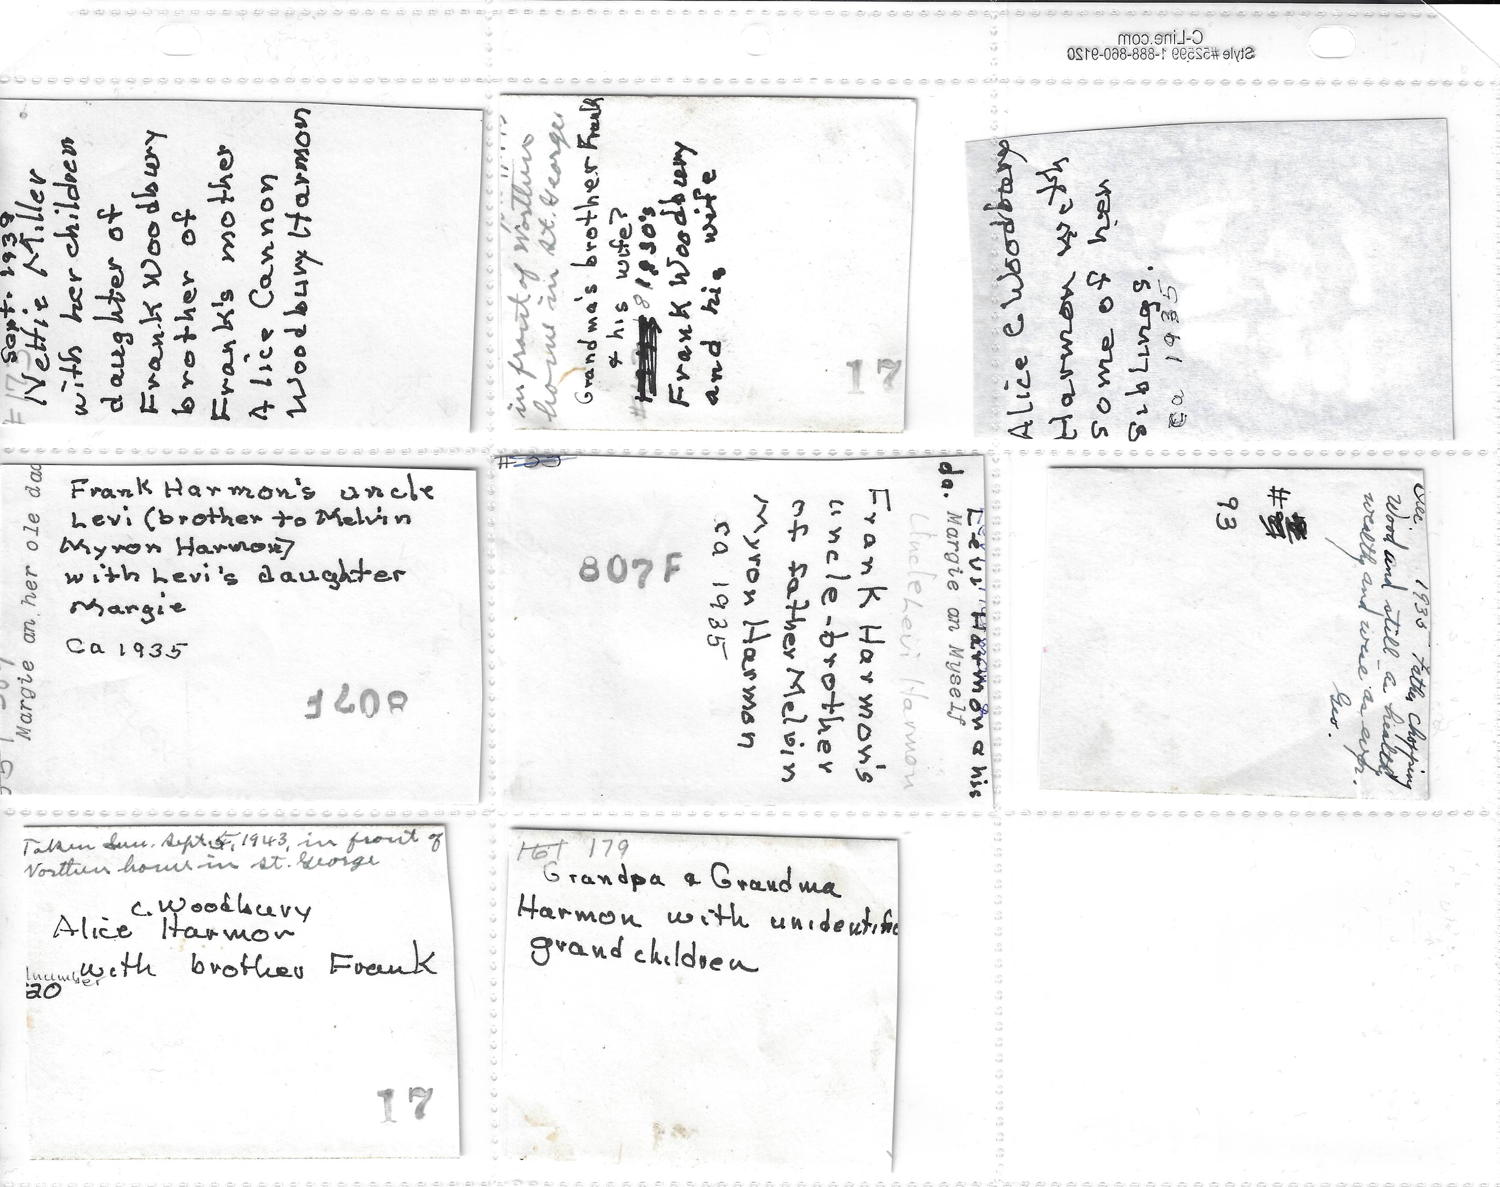 C-Line.com
Style #52599 1-888-860-9120
Sept. 1939
Nettie Miller
with her children
daughter of
Frank Woodbury
brother of
Frank's mother
Alice Cannon
Woodbury Harmon
in front of Northern
home in St. George
Grandma's brother Frank
& his wife?
1930's
Frank Woodbury
and his wife
17
Alice C Woodbury
Harmon with
some of her
siblings.
ca 1935
Margie an her ole dad
Frank Harmon's uncle
Levi (brother to Melvin
Myron Harmon)
with Levi's daughter
Margie
Ca 1935
807F
da. Margie an Myself
Levi Harmon & his
Uncle Levi Harmon
Frank Harmon's
uncle-brother
of father Melvin
Myron Harmon
ca 1935
807F
1935 Father chopping
Wood and still a healthy
wealthy and wise as ever.
Geo.
#
93
Taken Sun. Sept. 5, 1943, in front of
Northern home in St. George
C. Woodbury
Alice Harmon
with brother Frank
number
20
17
161 179
Grandpa & Grandma
Harmon with unidentifie
grandchildren